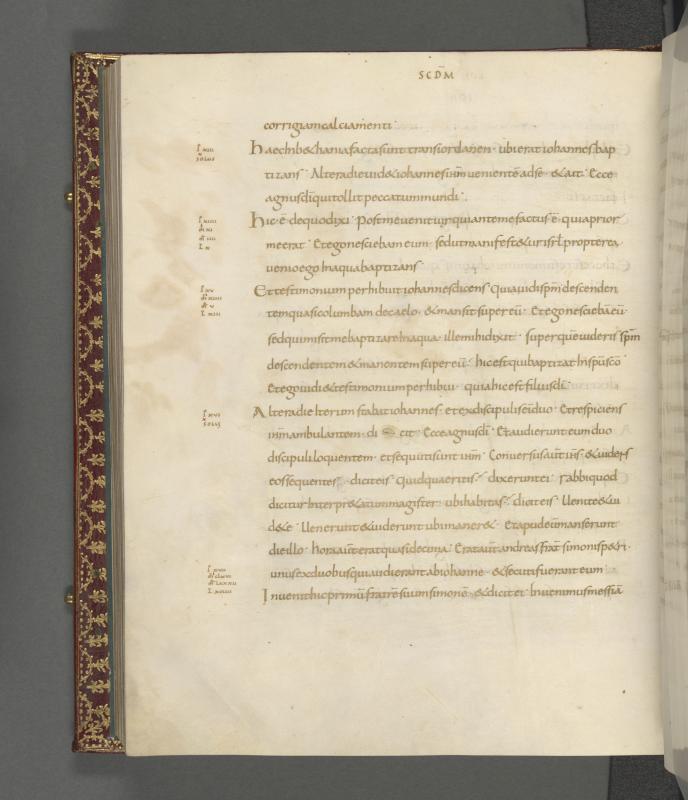 SCDM
corrigiam calciamenti
Haec In b&hania facta sunt trans iordanen· ubi erat iohannes bap
tizans· Altera die uid& iohannes ihm uenientē ad sē· & ait· Ecce
agnus dī qui tollit peccatum mundi·
hic· ē· de quo dixi· Post me uenit uir qui ante me factus· ē· quia prior
me erat· Et ego nesciebam eum· sed ut manifest&ur isrl propterea
uenio ego In aqua baptizans·
Et testimonium perhibuit iohannes dicens· Quia uidi spm descenden
tem quasi columbam de caelo· & mansit super eū· Et ego nesciebā eū
sed qui misit me baptizare In aqua· ille mihi dixit· super quē uideris spm
descendentem & manentem super eū· hic est qui baptizat In spu sco
Et ego uidi & testimonium perhibui· quia hic est filius dī·
Altera die Iterum stabat iohannes· et ex discipulis eī duo· Et respiciens
ihm ambulantem· di cit· Ecce agnus dī· Et audierunt eum duo
discipuli loquentem· et secuti sunt ihm· Conuersus aut ihs· & uidens
eos sequentes· dicit eis· Quid quaeritis· dixerunt ei· rabbi quod
dicitur Interpr&atum magister· ubi habitas· dicit eis· Uenite & ui
d&e· Uenerunt & uiderunt ubi maner&· Et apud eū manserunt
die illo· hora aut erat quasi decima· Erat aut andreas frat simonis p&ri·
unus ex duobus qui audierant ab iohanne· & secuti fuerant eum
Inuenit hic primū fratrē suum simonē· & dicit ei· Inuenimus messiā